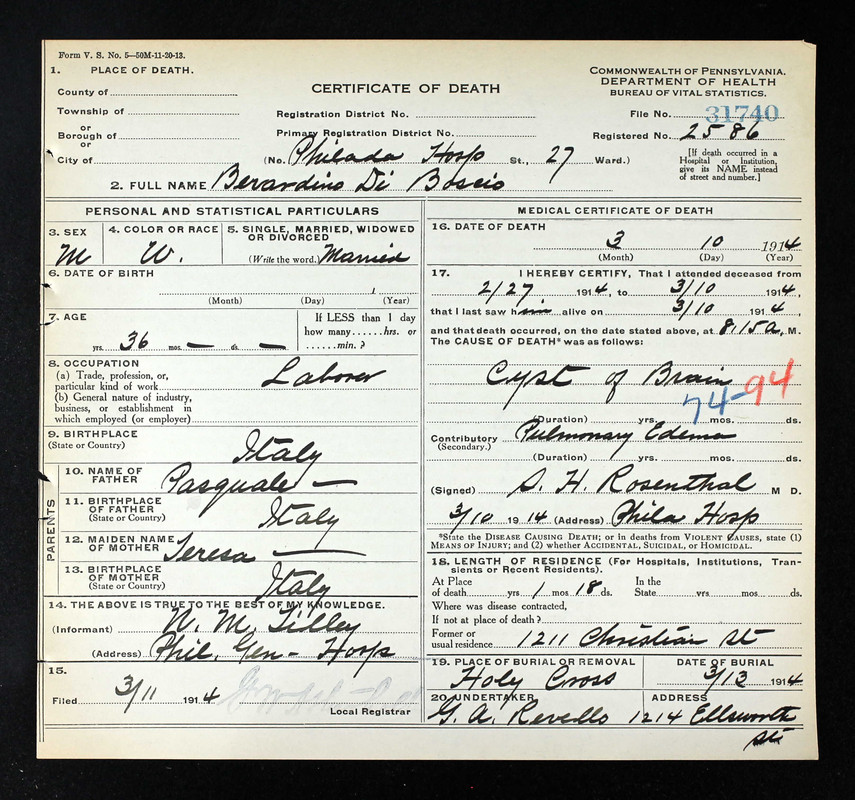 Form V. S. No. 5—50M-11-20-13.
1. PLACE OF DEATH.
County of
Township of
or
Borough of
or
City of
CERTIFICATE OF DEATH
Registration District No.
Primary Registration District No.
(No. Philada Hosp St., 27 Ward.)
COMMONWEALTH OF PENNSYLVANIA.
DEPARTMENT OF HEALTH
BUREAU OF VITAL STATISTICS.
File No. 31740
Registered No. 2586
[If death occurred in a
Hospital or Institution,
give its NAME instead
of street and number.]
2. FULL NAME Berardino Di Boscio
PERSONAL AND STATISTICAL PARTICULARS
3. SEX
M
4. COLOR OR RACE
W.
5. SINGLE, MARRIED, WIDOWED
OR DIVORCED
(Write the word.) Married
6. DATE OF BIRTH
(Month) (Day) (Year)
7. AGE
yrs. 36 mos. — ds. —
If LESS than 1 day
how many......hrs. or
......min.?
8. OCCUPATION
(a) Trade, profession, or,
particular kind of work Laborer
(b) General nature of industry,
business, or establishment in
which employed (or employer)
9. BIRTHPLACE
(State or Country)
Italy
PARENTS
10. NAME OF
FATHER
Pasquale —
11. BIRTHPLACE
OF FATHER
(State or Country)
Italy
12. MAIDEN NAME
OF MOTHER
Teresa —
13. BIRTHPLACE
OF MOTHER
(State or Country)
Italy
14. THE ABOVE IS TRUE TO THE BEST OF MY KNOWLEDGE.
(Informant) N. M. Tilley
(Address) Phil. Gen- Hosp
15.
Filed 3/11 1914
Local Registrar
MEDICAL CERTIFICATE OF DEATH
16. DATE OF DEATH
3 10 1914
(Month) (Day) (Year)
17. I HEREBY CERTIFY, That I attended deceased from
2/27 1914, to 3/10 1914,
that I last saw him alive on 3/10 1914,
and that death occurred, on the date stated above, at 8.15a, M.
The CAUSE OF DEATH* was as follows:
Cyst of Brain
74-94
(Duration) yrs. mos. ds.
Contributory Pulmonary Edema
(Secondary.)
(Duration) yrs. mos. ds.
(Signed) S. H. Rosenthal M D.
3/10 1914 (Address) Phila Hosp
*State the DISEASE CAUSING DEATH; or in deaths from VIOLENT CAUSES, state (1)
MEANS OF INJURY; and (2) whether ACCIDENTAL, SUICIDAL, or HOMICIDAL.
18. LENGTH OF RESIDENCE (For Hospitals, Institutions, Tran-
sients or Recent Residents).
At Place
of death yrs 1 mos 18 ds.
In the
State yrs. mos. ds.
Where was disease contracted,
If not at place of death?
Former or
usual residence 1211 Christian St
19. PLACE OF BURIAL OR REMOVAL
Holy Cross
DATE OF BURIAL
3/13 1914
20 UNDERTAKER
G. A. Revello
ADDRESS
1214 Ellsworth
St.